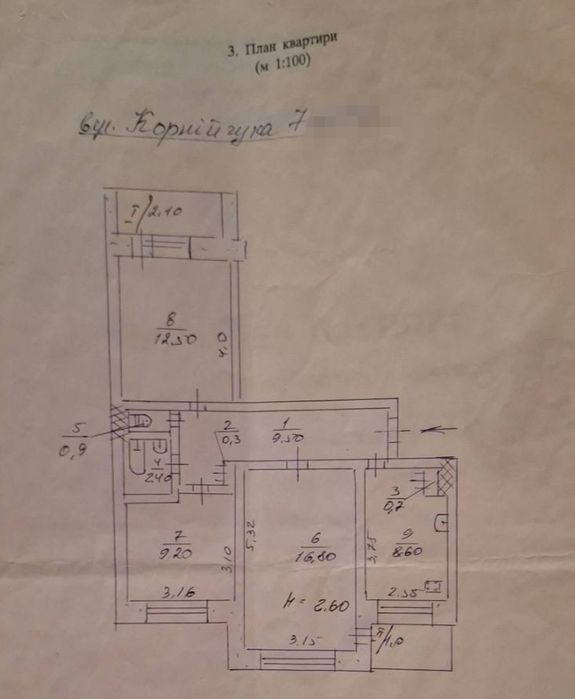 3. План квартири
(м 1:100)
вул. Корнійчука 7
I/2.10
8/12.50
4.0
5/0,9
2/0,3
1/9.50
4/2.40
3/0,7
7/9.20
3.10
5,32
6/16,80
3,75
9/8.60
3.16
H = 2.60
2.35
3.15